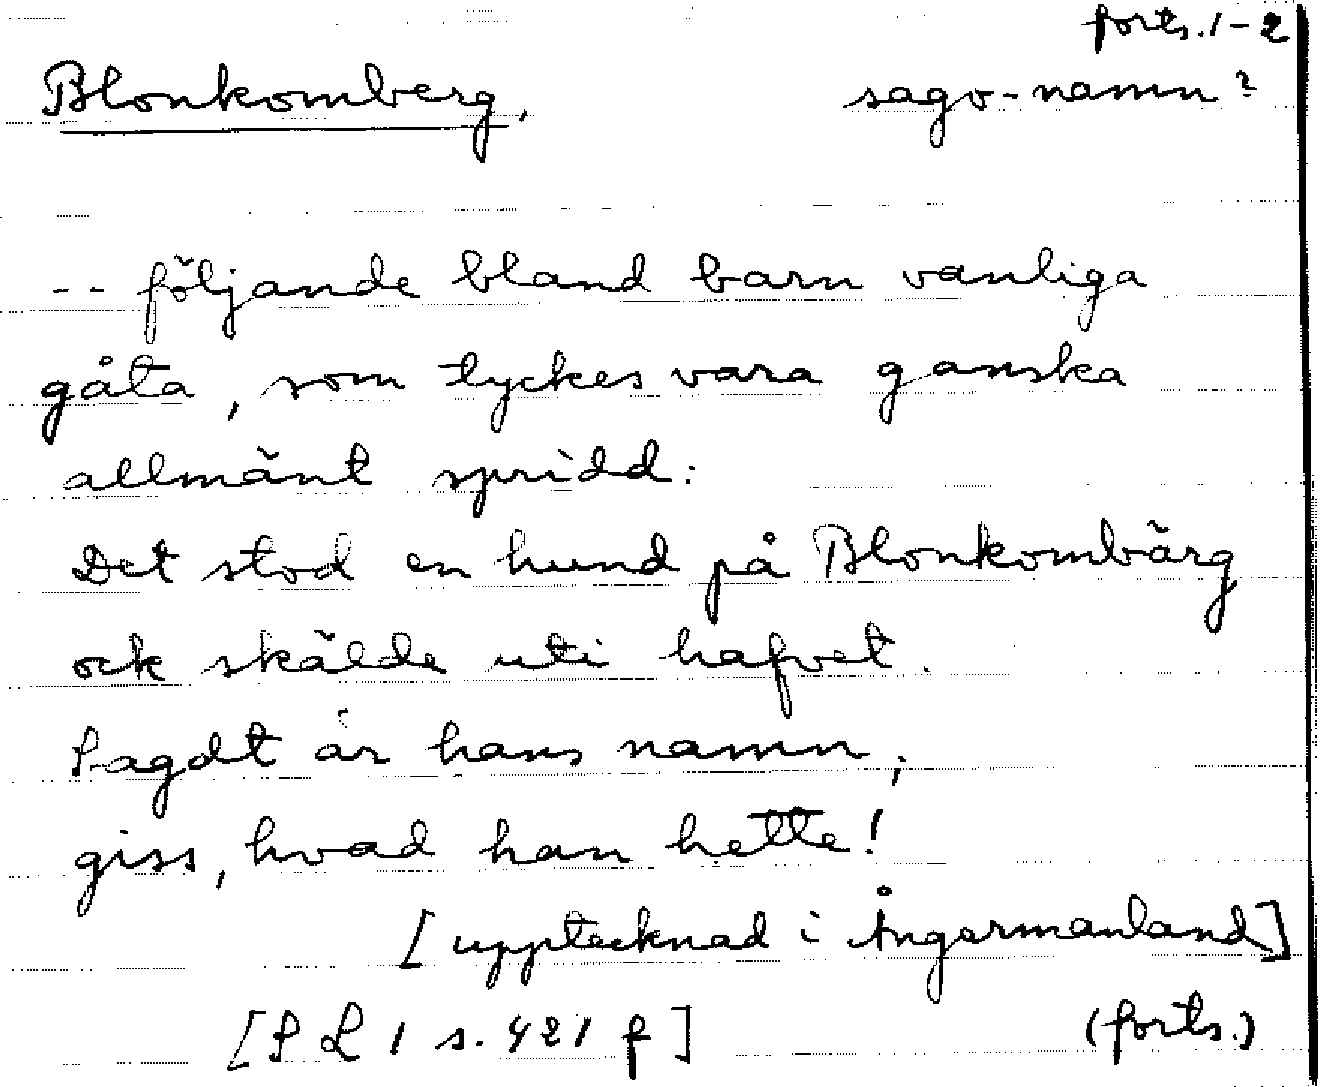 forts. 1-2
Blonkomberg, sago-namn?
-- följande bland barn vanliga
gåta, som tyckes vara ganska
allmänt spridd:
Det stod en hund på Blonkombärg
ock skälde uti hafvet.
Sagdt är hans namn,
giss, hvad han hette!
[upptecknad i Ångermanland]
[SL 1 s. 421 f]
(forts.)